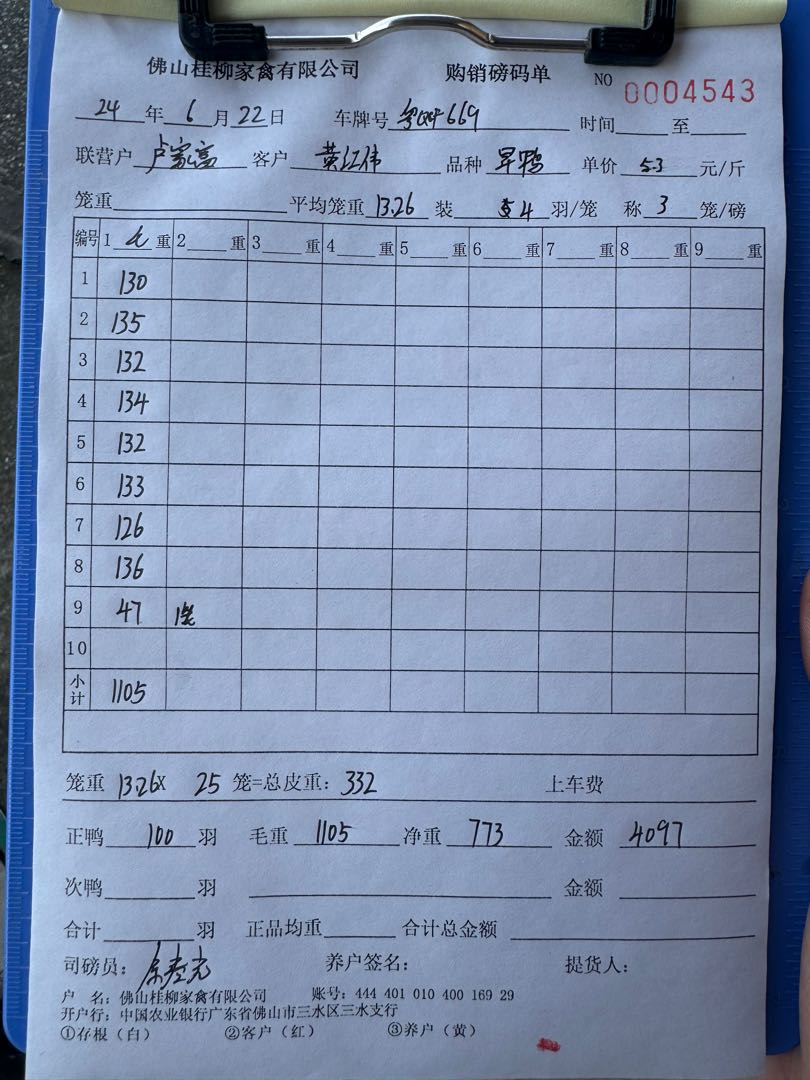 佛山桂柳家禽有限公司 购销磅码单 NO 0004543
24 年 6 月 22 日 车牌号 669 时间 至
联营户 卢家富 客户 黄江伟 品种 旱鸭 单价 5.3 元/斤
笼重 平均笼重 13.26 装 4 羽/笼 称 3 笼/磅
编号 1 重 2 重 3 重 4 重 5 重 6 重 7 重 8 重 9 重
1 130
2 135
3 132
4 134
5 132
6 133
7 126
8 136
9 47
10
小计 1105
笼重 13.26X 25 笼=总皮重: 332 上车费
正鸭 100 羽 毛重 1105 净重 773 金额 4097
次鸭 羽 金额
合计 羽 正品均重 合计总金额
司磅员: 养户签名: 提货人:
户 名: 佛山桂柳家禽有限公司 账号: 444 401 010 400 169 29
开户行: 中国农业银行广东省佛山市三水区三水支行
①存根(白) ②客户(红) ③养户(黄)